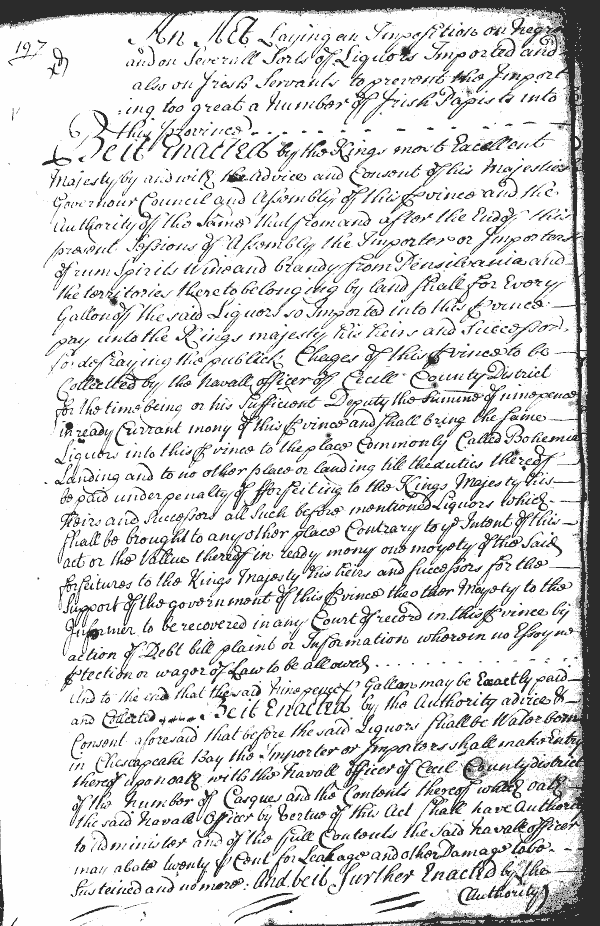 197
An Act Laying an Imposition on Negro
and on Severall Sorts of Liquors Imported and
also on Irish Servants to prevent the Import
ing too great a Number of Irish Papists into
this province
Be it Enacted by the Kings most Excellent
Majesty by and with the Advice and Consent of his Majesties
Governour Council and Assembly of this Province and the
Authority of the Same that from and after the End of this
present Sessions of Assembly the Importer or Importers
of rum Spirits Wine and brandy from Pensilvania and
the territories thereto belonging by land shall for Every
Gallon of the said Liquors so Imported into this Province
pay unto the Kings majesty his heirs and Successors
for defraying the publick Chages of this Province to be
Collected by the Navall officer of Cecill County District
for the time being or his Sufficient Deputy the summe of ninepence
in ready Currant mony of this Province and shall bring the same
Liquors into this Province to the place Commonly Called Bohemia
Landing and to no other place or landing till the duties thereof
be paid under penalty of fforfeiting to the Kings Majesty his
Heirs and Successors all such before mentioned Liquors which
shall be brought to any other place Contrary to ye Intent of this
act or the Vallue thereof in ready mony one moyety of the said
forfeitures to the Kings Majesty his heirs and successors for the
Support of the government of this Province the other Moyety to the
Informer to be recovered in any Court of record in this Province by
action of Debt bill plaint or Information wherein no Essoyne
Protection or wager of Law to be allowed
And to the end that the said Ninepence Gallon may be Exactly paid
and Collected Be it Enacted by the Authority advice &
Consent aforesaid that before the said Liquors shall be Waterborn
in Chesapeake Bay the Importer or Importers shall make Entry
thereof upon oath with the Navall officer of Cecil County district
of the Number of Casques and the Contents thereof which oath
the said Navall Officer by Vertue of this Act shall have Authority
to Administer and of the full Contents the said Navall officer
may abate twenty P Cent for Leakage and other Damage to be
Susteined and no more. And be it further Enacted by the
(Authority)